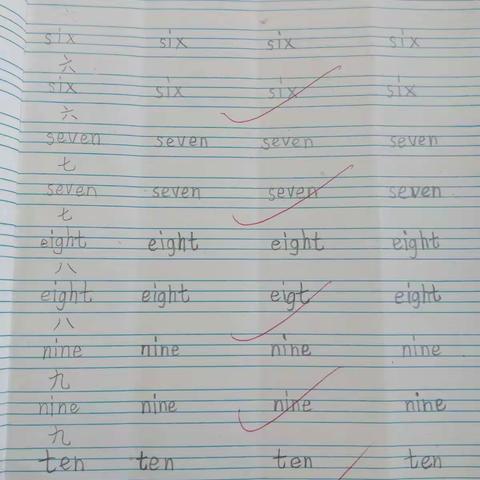 six six six six
六
six six six six
六
seven seven seven seven
七
seven seven seven seven
七
eight eight eight eight
八
eight eight eigt eight
八
nine nine nine nine
九
nine nine nine nine
九
ten ten ten ten